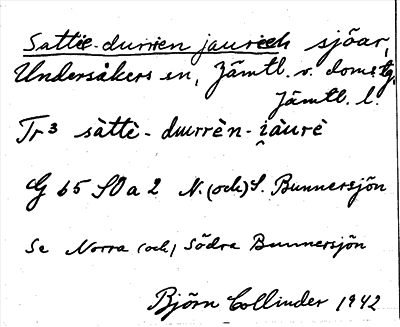 Sattie-durrien jaurieh sjöar,
Undersåkers sn, Jämtl. v. doms.tg,
Jämtl. l.
Tr³ sàttè-durrèn-i̯àurè
G 65 SO a 2 N. (och) S. Bunnersjön
Se Norra (och) Södra Bunnersjön
Björn Collinder 1942